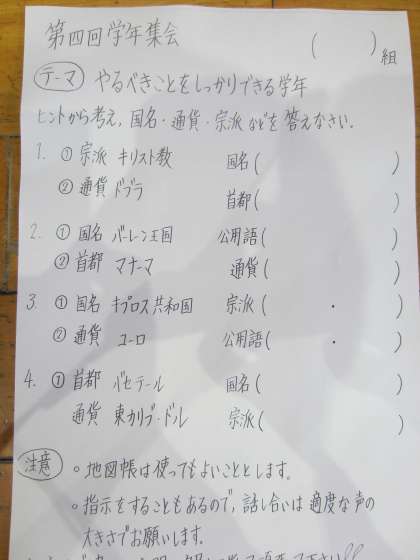 第四回学年集会 (　　)組
テーマ やるべきことをしっかりできる学年
ヒントから考え、国名・通貨・宗派などを答えなさい。
1. ① 宗派 キリスト教 国名(　　)
② 通貨 ドブラ 首都(　　)
2. ① 国名 バーレーン王国 公用語(　　)
② 首都 マナーマ 通貨(　　)
3. ① 国名 キプロス共和国 宗派(　・　)
② 通貨 ユーロ 公用語(　・　)
4. ① 首都 バセテール 国名(　　)
通貨 東カリブ・ドル 宗派(　　)
注意 。地図帳は使ってもよいこととします。
。指示をすることもあるので、話し合いは適度な声の
大きさでお願いします。